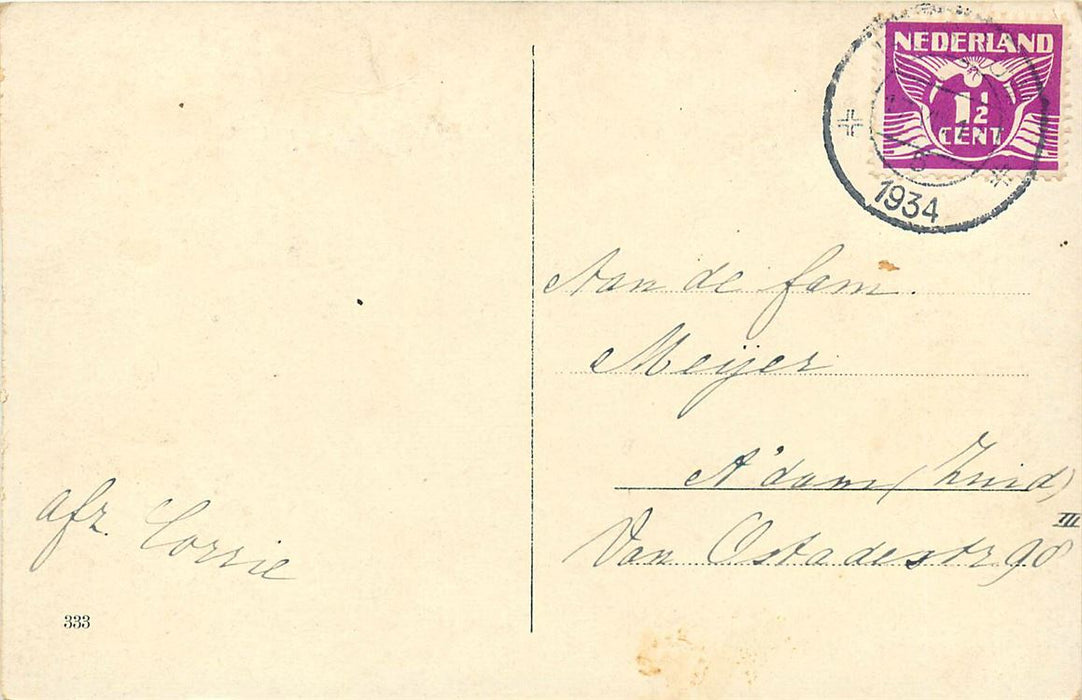 NEDERLAND
1½
CENT
1934
Aan de fam.
Meijer
A'dam (Zuid)
Van Ostadestr 98 III
afz. Corrie
333